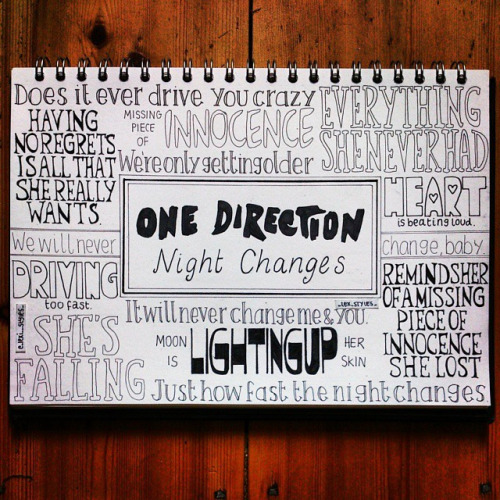 Does it ever drive you crazy
EVERYTHING
SHE NEVER HAD
HAVING
NO REGRETS
IS ALL THAT
SHE REALLY
WANTS.
MISSING
PIECE
OF
INNOCENCE
We're only getting older
HEART
is beating loud.
ONE DIRECTION
Night Changes
We will never
change, baby.
DRIVING
too fast.
REMINDS HER
OF A MISSING
PIECE OF
INNOCENCE
SHE LOST
It will never change me & you.
SHE'S
FALLING
MOON
IS
LIGHTING UP
HER
SKIN
Just how fast the night changes.